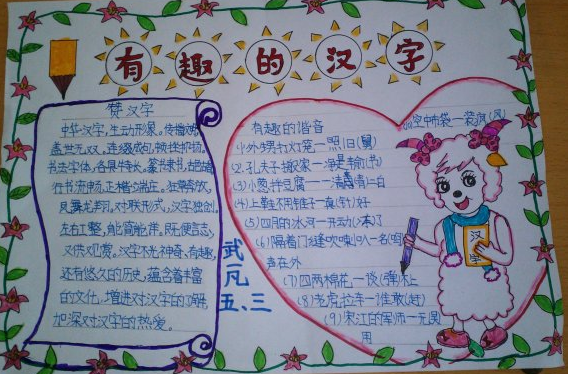 有趣的汉字
赞汉字
中华汉字,生动形象。传播
盖世无双。连缀成句,顿挫抑扬。
书法字体,各具特长,篆书隶书,古朴
行书流畅。正楷端庄。狂草奔放,
凤舞龙翔。对联形式,汉字独创。
左右工整,能简能详。既便言志,
又供观赏。汉字不光神奇、有趣,
还有悠久的历史,蕴含着丰富
的文化,增进对汉字的了解,
加深对汉字的热爱。
武一凡
五、三
有趣的谐音
(1)外甥打灯笼—照旧(舅)
(2)孔夫子搬家—净是输(书)
(3)小葱拌豆腐—一清二白
(4)上鞋不用锥子—真(针)好
(5)四月的冰河—开动(冻)了
(6)隔着门缝吹喇叭—名(鸣)
声在外
(7)四两棉花—谈(弹)不上
(8)老虎拉车—谁敢(赶)
(9)宋江的军师—无(吴)
用
空中布袋—装疯(风)
汉
字